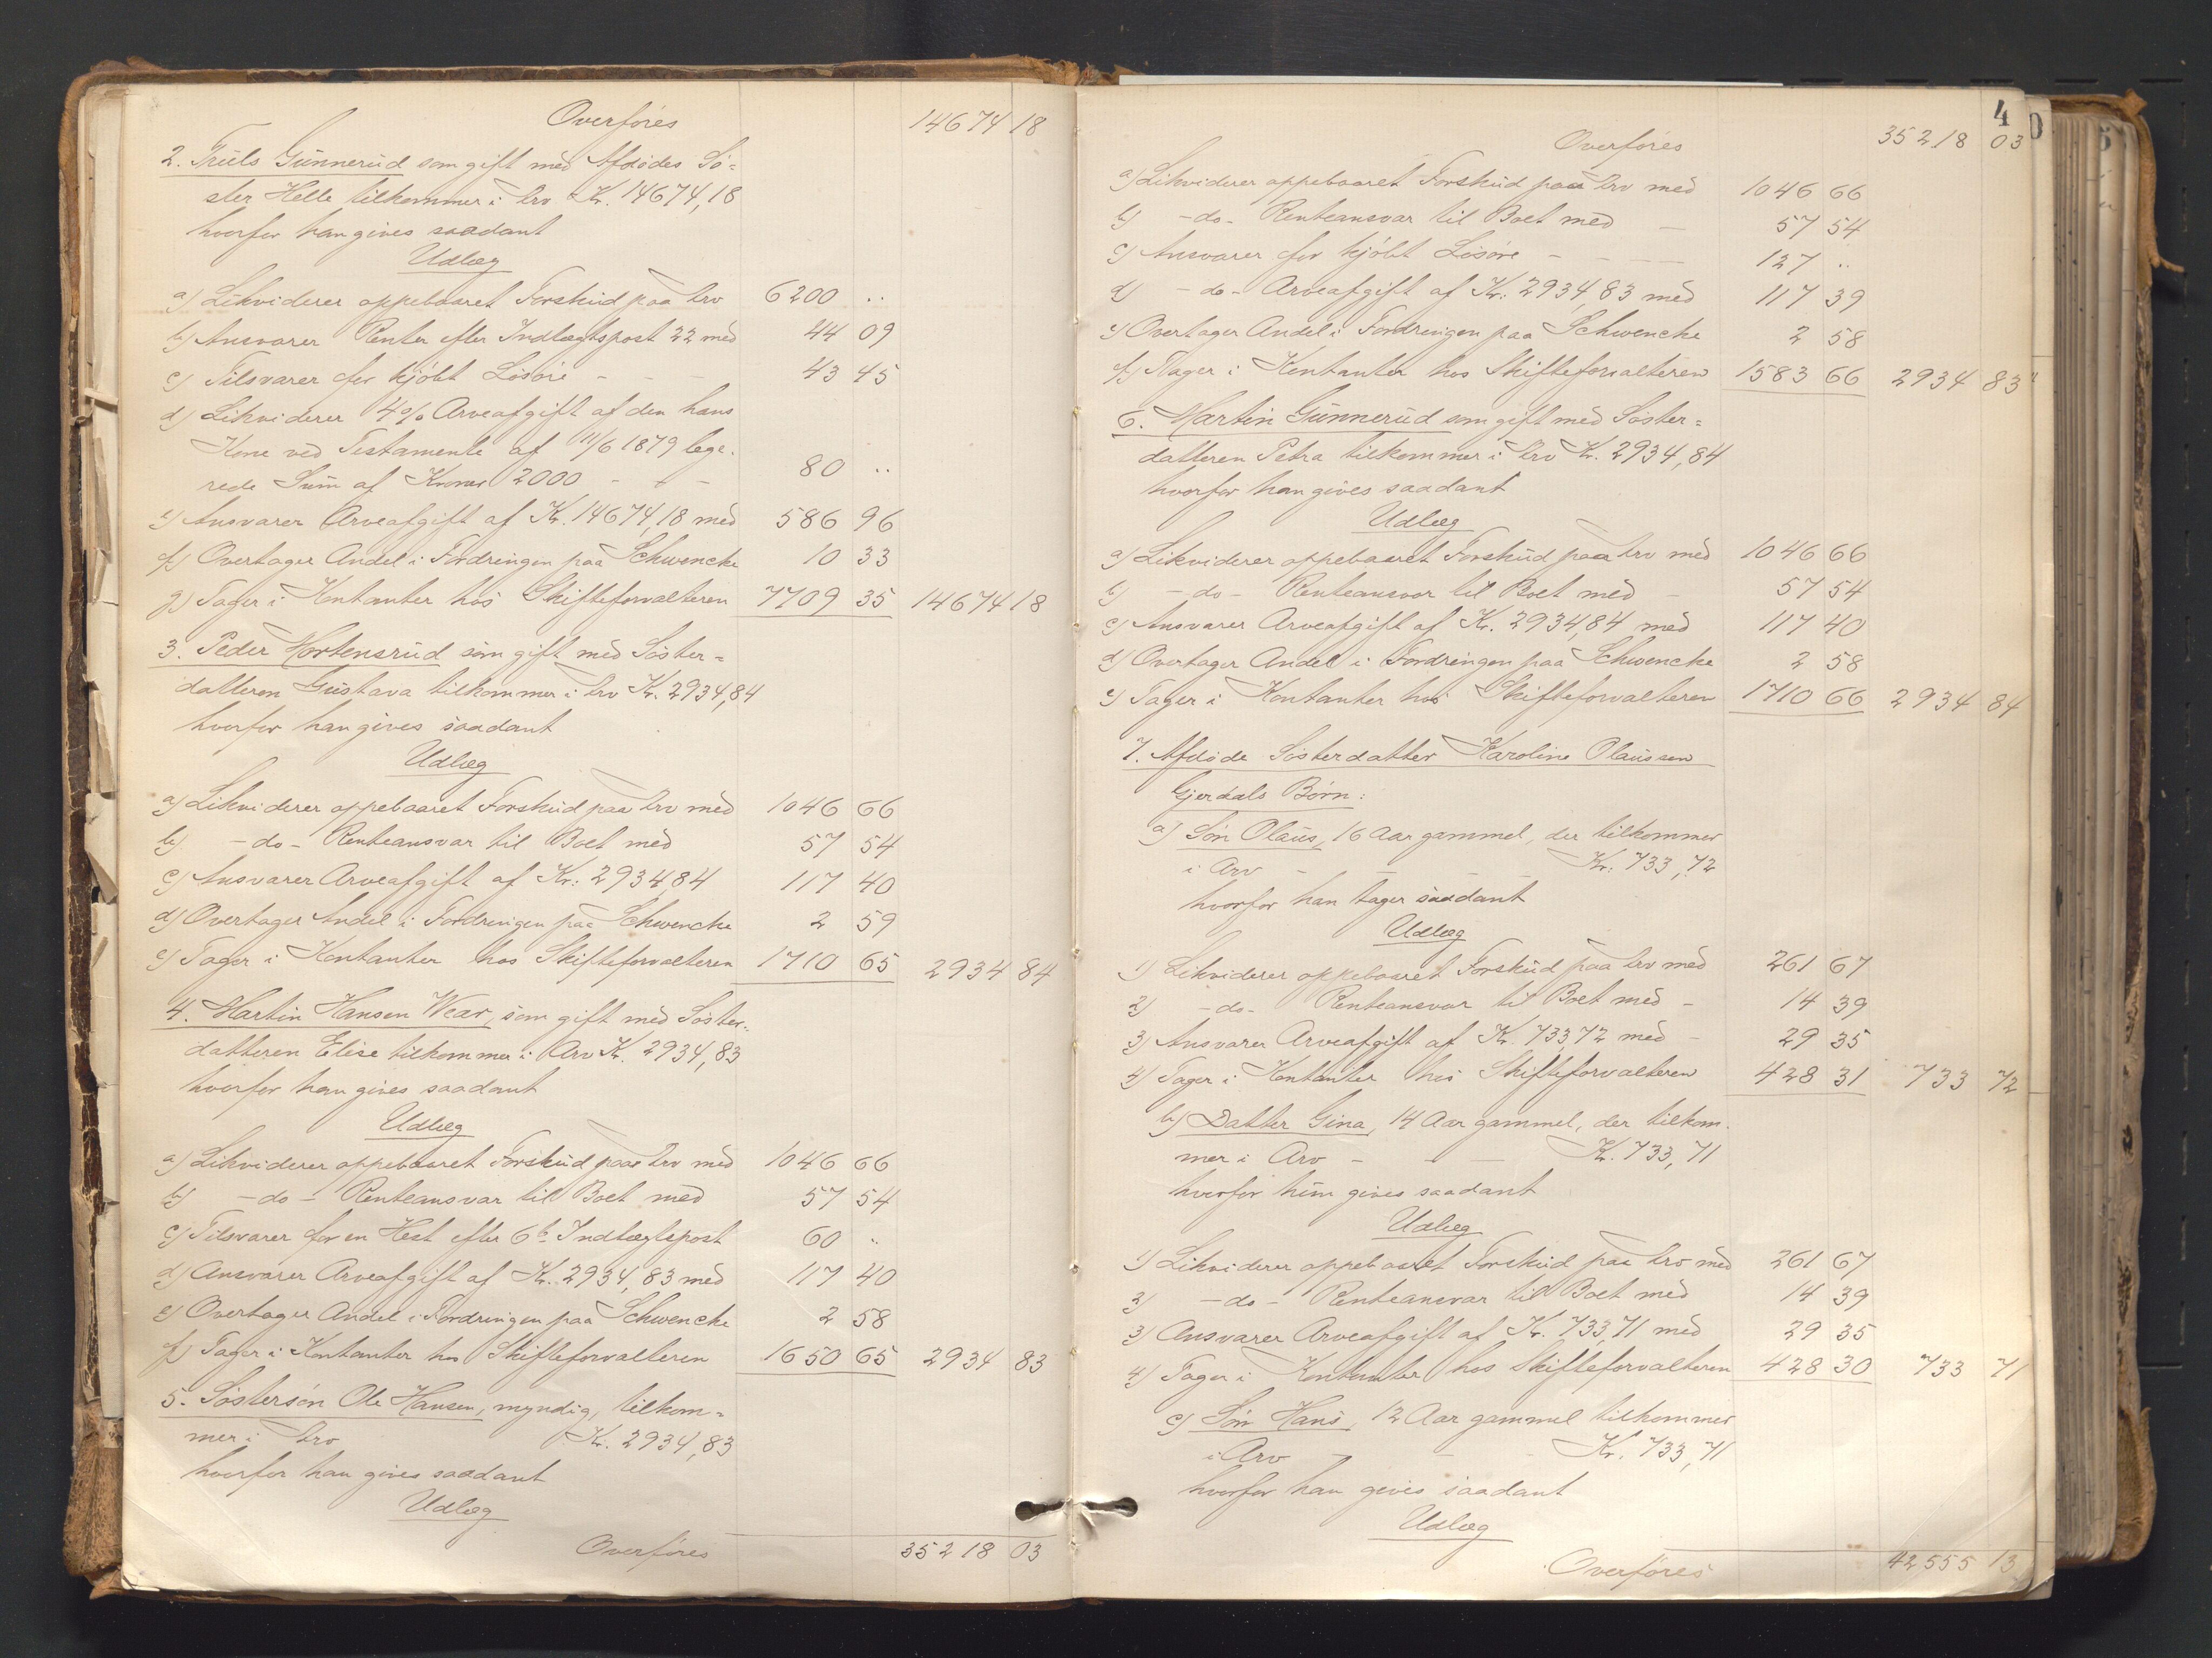 Overføres 14674 18
2. Truls Gunnerud som gift med Afdødes Sø-
ster Helle tilkommer i Arv Kr. 14674,18
hvorfor han gives saadant
Udlæg
a) Likviderer oppebaaret Forskud paa Arv 6200 ..
b) Ansvarer Renter efter Indtægtspost 22 med 44 09
c) Tilsvarer for kjøbt Løsøre - - - 43 45
d) Likviderer 4% Arveafgift af den hans
Kone ved Testamente af 11/6 1879 lege-
rede Sum af Kroner 2000 - - - 80 ..
e) Ansvarer Arveafgift af Kr. 14674,18 med 586 96
f) Overtager Andel i Fordringen paa Schwencke 10 33
g) Tager i Kontanter hos Skifteforvalteren 7709 35 14674 18
3. Peder Mortensrud som gift med Søster-
datteren Gustava tilkommer i Arv Kr. 2934,84
hvorfor han gives saadant
Udlæg
a) Likviderer oppebaaret Forskud paa Arv med 1046 66
b) -do- Renteansvar til Boet med 57 54
c) Ansvarer Arveafgift af Kr: 2934,84 117 40
d) Overtager Andel i Fordringen paa Schwencke 2 59
e) Tager i Kontanter hos Skifteforvalteren 1710 65 2934 84
4. Martin Hansen Wear, som gift med Søster-
datteren Elise tilkommer i Arv Kr. 2934,83
hvorfor han gives saadant
Udlæg
a) Likviderer oppebaaret Forskud paa Arv med 1046 66
b) -do- Renteansvar til Boet med 57 54
c) Tilsvarer for en Hest efter 6b Indtægtspost 60 ..
d) Ansvarer Arveafgift af Kr. 2934,83 med 117 40
e) Overtager Andel i Fordringen paa Schwencke 2 58
f) Tager i Kontanter hos Skifteforvalteren 1650 65 2934 83
5. Søstersøn Ole Hansen, myndig, tilkom-
mer i Arv Kr. 2934,83
hvorfor han gives saadant
Udlæg
Overføres 35218 03
4
Overføres 35218 03
a) Likviderer oppebaaret Forskud paa Arv med 1046 66
b) -do- Renteansvar til Boet med - 57 54
c) Ansvarer for kjøbt Løsøre - - - - 127 ..
d) -do- Arveafgift af Kr: 2934,83 med 117 39
e) Overtager Andel i Fordringen paa Schwencke 2 58
f) Tager i Kontanter hos Skifteforvalteren 1583 66 2934 83
6. Martin Gunnerud som gift med Søster-
datteren Petra tilkommer i Arv Kr. 2934,84
hvorfor han gives saadant
Udlæg
a) Likviderer oppebaaret Forskud paa Arv med 1046 66
b) -do- Renteansvar til Boet med - 57 54
c) Ansvarer Arveafgift af Kr. 2934,84 med 117 40
d) Overtager Andel i Fordringen paa Schwencke 2 58
e) Tager i Kontanter hos Skifteforvalteren 1710 66 2934 84
7. Afdøde Søsterdatter Karoline Olaussen
Gjerdals Børn:
a) Søn Olaus, 16 Aar gammel, der tilkommer
i Arv - - - Kr. 733,72
hvorfor han tager saadant
Udlæg
1) Likviderer oppebaaret Forskud paa Arv med 261 67
2) -do- Renteansvar til Boet med - 14 39
3) Ansvarer Arveafgift af Kr. 733,72 med - 29 35
4) Tager i Kontanter hos Skifteforvalteren 428 31 733 72
b) Datter Gina, 14 Aar gammel, der tilkom-
mer i Arv - - - Kr. 733,71
hvorfor hun gives saadant
Udlæg
1) Likviderer oppebaaret Forskud paa Arv med 261 67
2) -do- Renteansvar til Boet med 14 39
3) Ansvarer Arveafgift af Kr. 733,71 med 29 35
4) Tager i Kontanter hos Skifteforvalteren 428 30 733 71
c) Søn Hans, 12 Aar gammel tilkommer
i Arv - - - Kr. 733,71
hvorfor han gives saadant
Udlæg
Overføres 42555 13